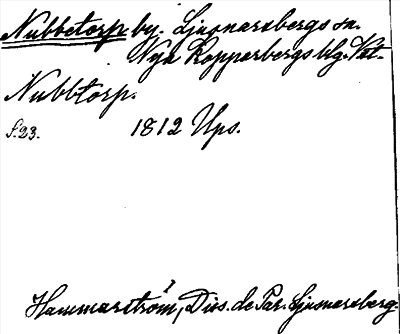 Nubbetorp by. Ljusnarsbergs sn.
Nya Kopparbergs blg. Vst-
Nubbtorp.
S. 23. 1812 Ups.
Hammarström, Diss. de Par. Ljusnarsberg.